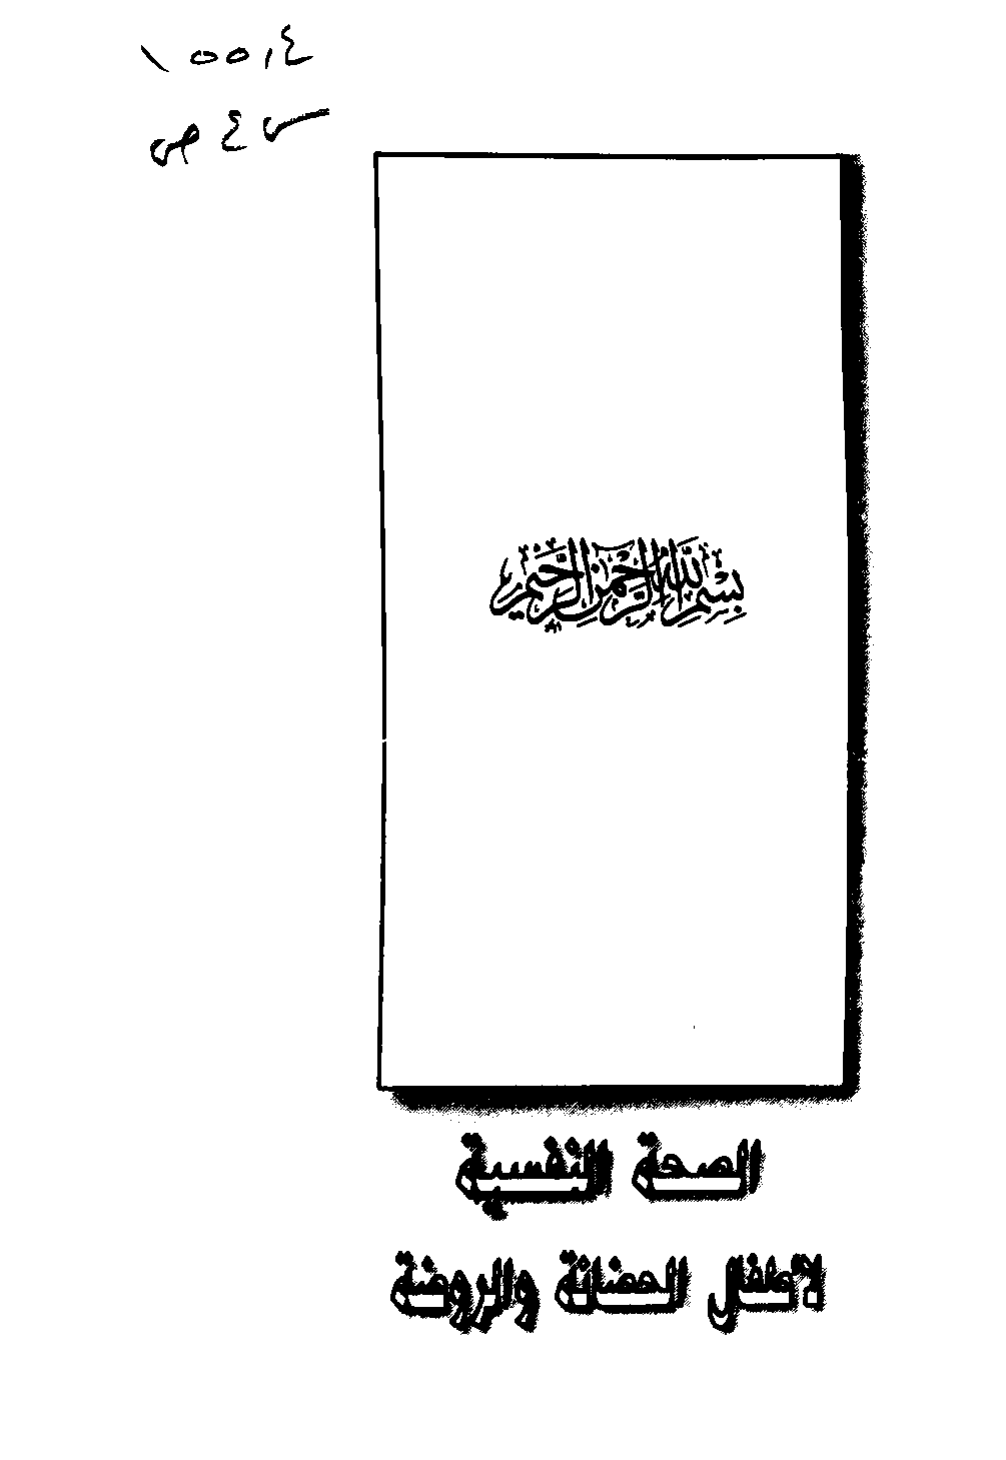 ١٥٥,٤
بِسْمِ اللَّهِ الرَّحْمَنِ الرَّحِيمِ
الصحة النفسية
لأطفال الحضانة والروضة